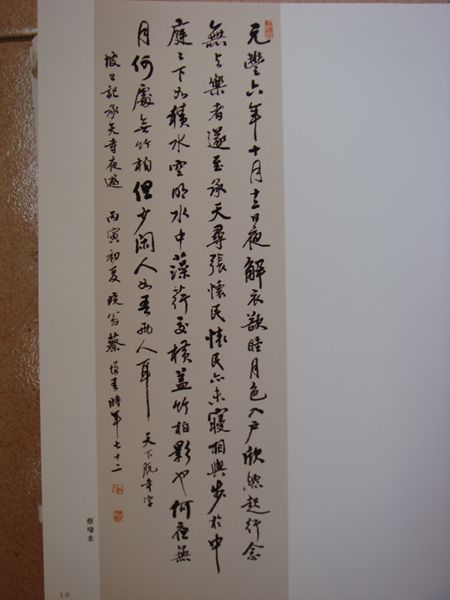 元豐六年十月十二日夜解衣欲睡月色入户欣然起行念
無与樂者遂至承天尋張懷民懷民亦未寢相與步於中
庭〻下如積水空明水中藻荇交橫蓋竹柏影也何夜無
月何處无竹柏但少闲人如吾兩人耳 天下脱寺字
坡公記承天寺夜遊 丙寅初夏 晓翁蔡增圭時年七十二
蔡增圭
10